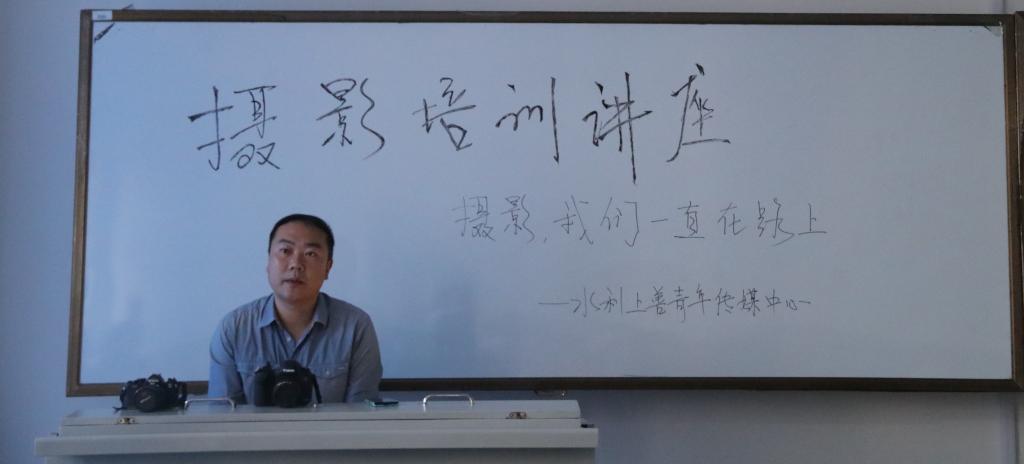 摄影培训讲座
摄影,我们一直在路上
——水利上善青年传媒中心
Canon